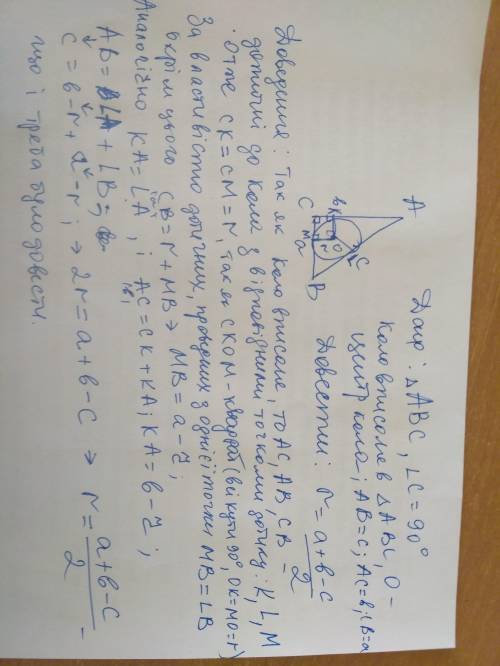 Дано: △ABC, ∟C=90°
коло вписане в △ABC, O –
центр кола; AB=c; AC=b; CB=a
Довести: r = a+b-c / 2
A
b
K
C
M
a
O
r
L
c
B
Доведення: Так як коло вписане, то AC, AB, CB –
дотичні до кола з відповідними точками дотику: K, L, M
Отже CK=CM=r, так як CKOM – квадрат (всі кути 90°, OK=MO=r)
За властивістю дотичних, проведених з однієї точки MB=LB
окрім цього CB=r+MB ⇒ MB=a-r;
Аналогічно KA=LA, і AC=CK+KA; KA=b-r;
AB=LA+LB;
c=b-r+a-r; ⇒ 2r=a+b-c ⇒ r= a+b-c / 2 –
що і треба було довести.